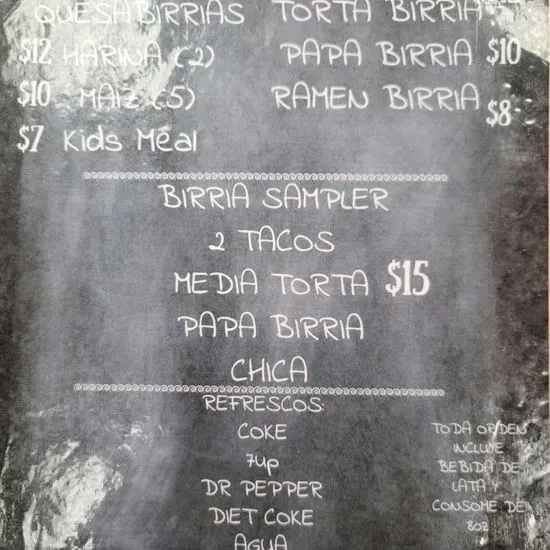 QUESABIRRIAS TORTA BIRRIA
$12 HARINA (2) PAPA BIRRIA $10
$10 MAIZ (5) RAMEN BIRRIA $8
$7 Kids Meal
BIRRIA SAMPLER
2 TACOS
MEDIA TORTA $15
PAPA BIRRIA
CHICA
REFRESCOS:
COKE
7up
DR PEPPER
DIET COKE
AGUA
TODA ORDEN
INCLUYE
BEBIDA DE
LATA Y
CONSOME DE
8oz